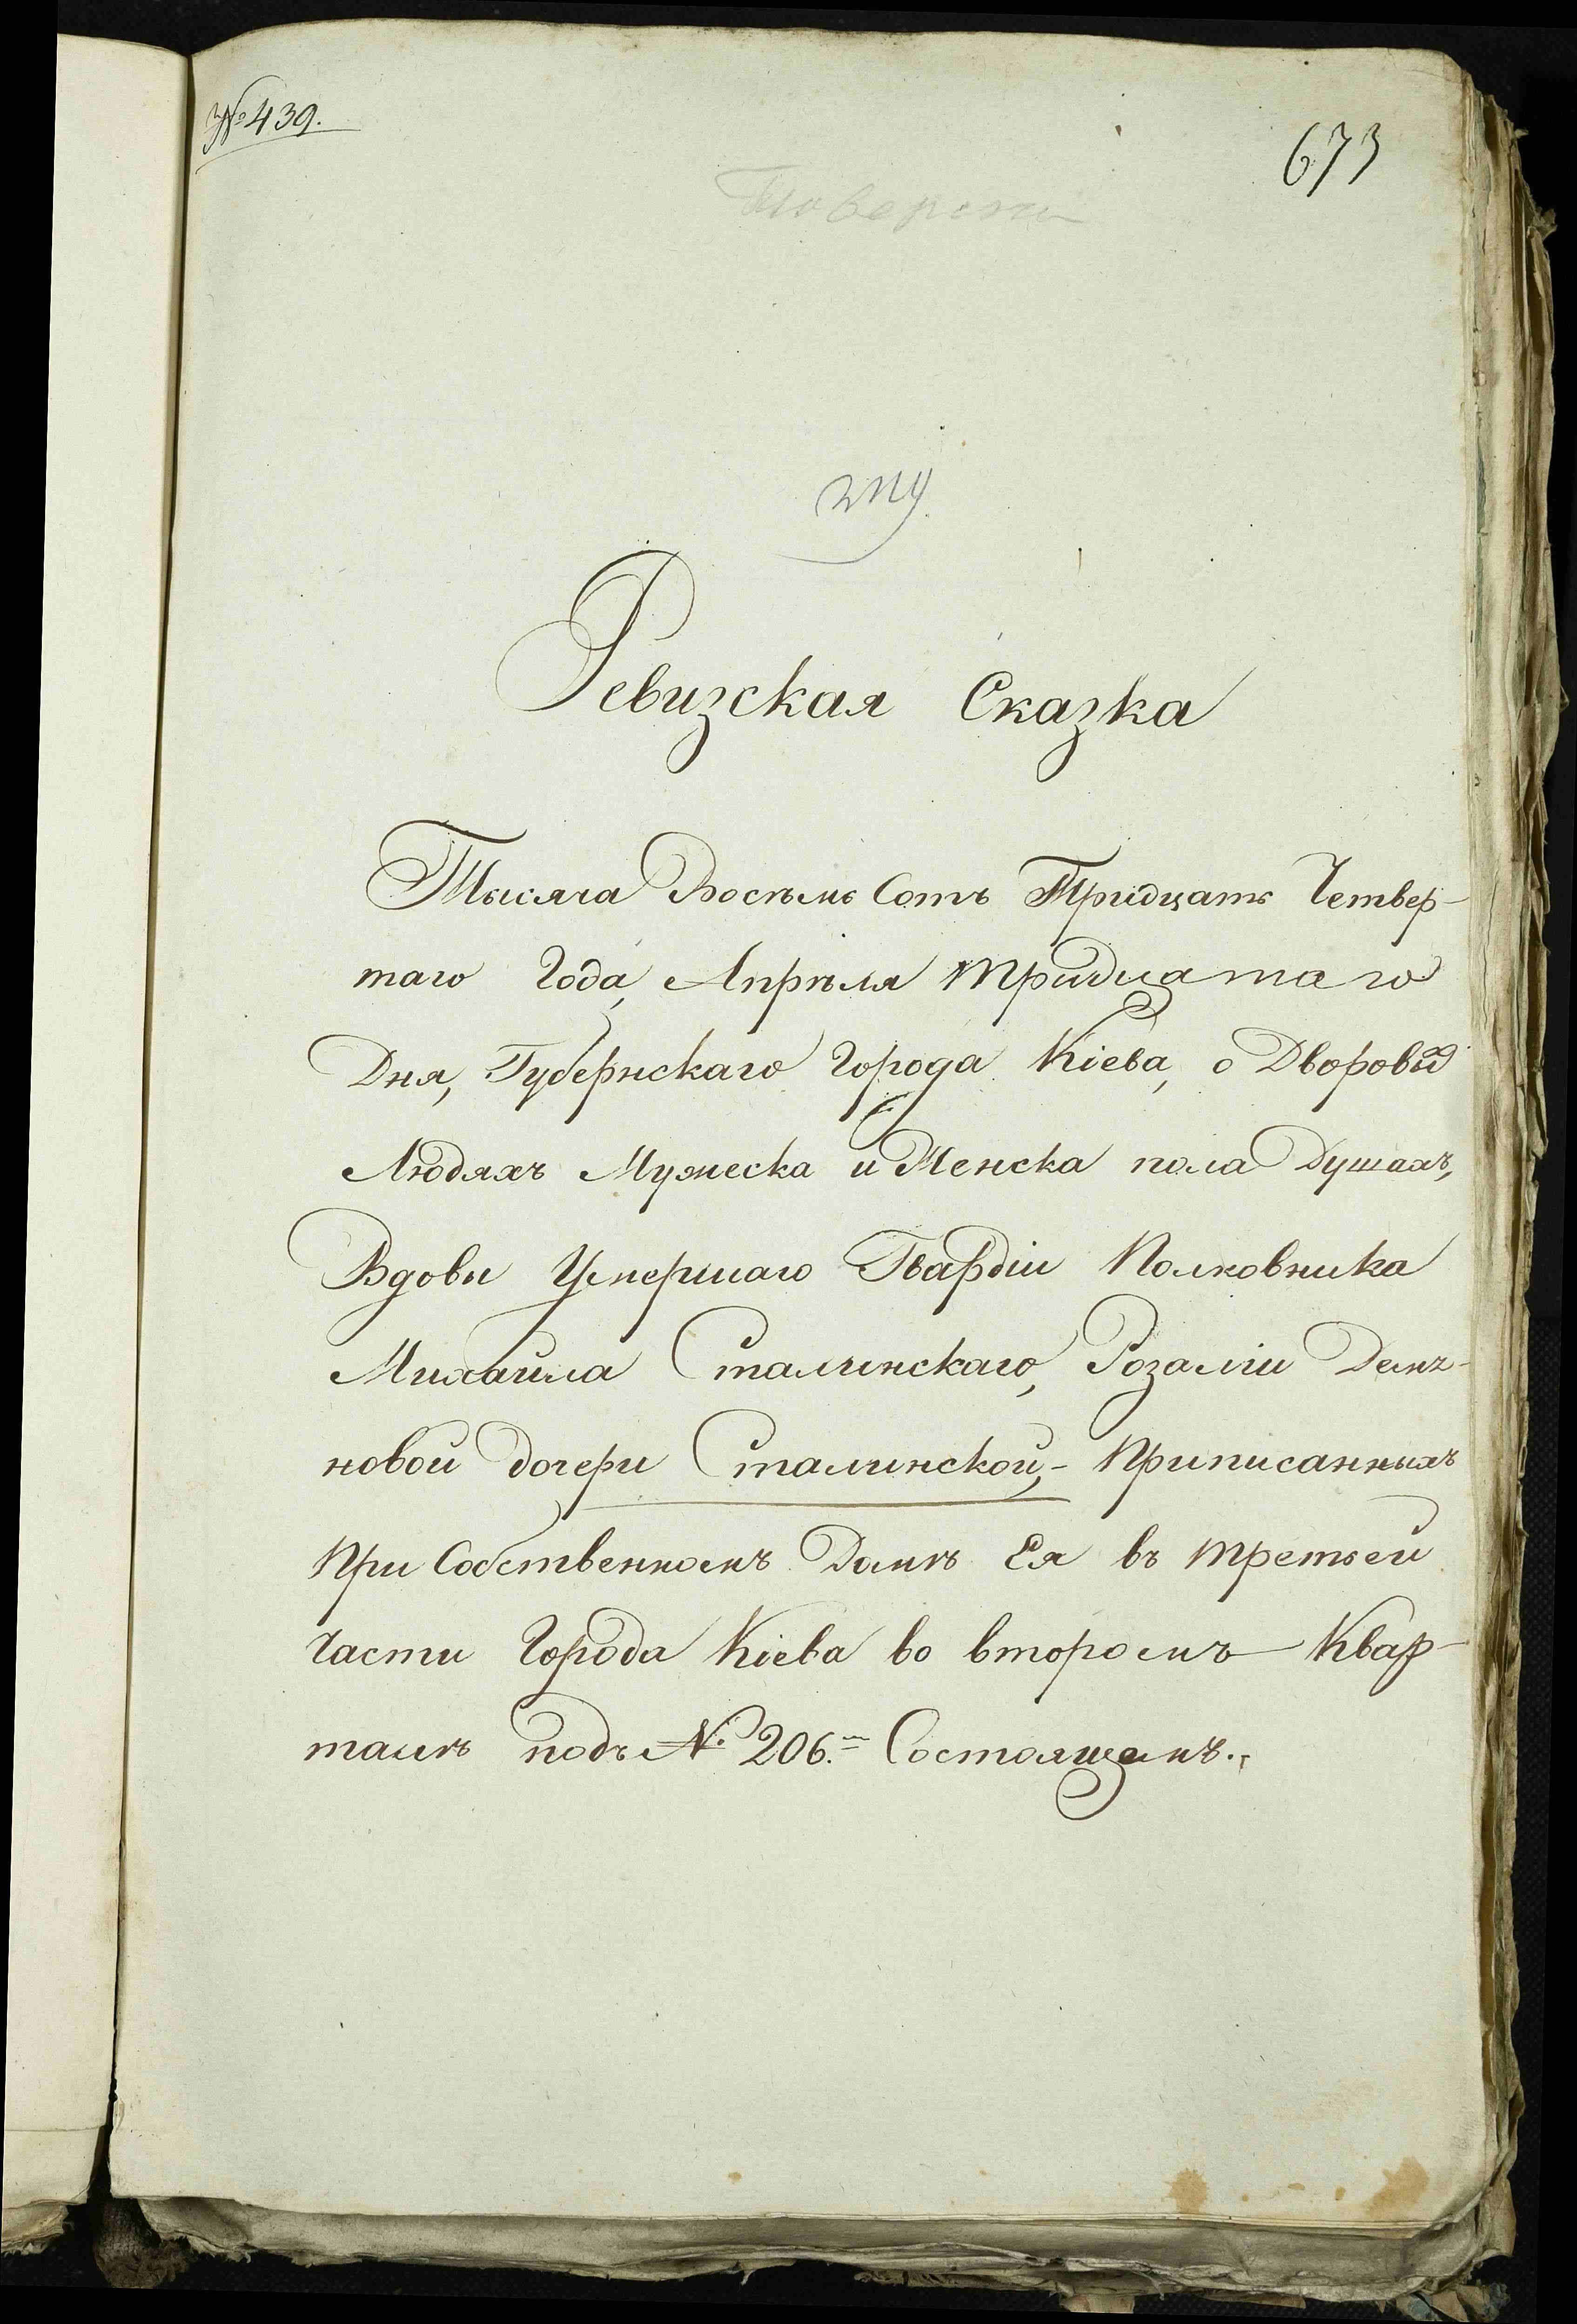 № 439.
673
Ревизская Сказка
Тысяча Восѣмь Сотъ Тридцать Четвер-
таго Года, Апрѣля тридцатаго
Дня, Губернскаго Города Кіева, о Дворовых
Людяхъ Мужеска и Женска пола Душахъ,
Вдовы Умершаго Гвардіи Полковника
Михайла Сталинскаго, Розаліи
новой дочери Сталинской,- Приписанныхъ
При Собственномъ Домѣ Ея въ третьей
Части Города Кіева во второмъ Квар-
талѣ подъ № 206.м Состоящемъ.,